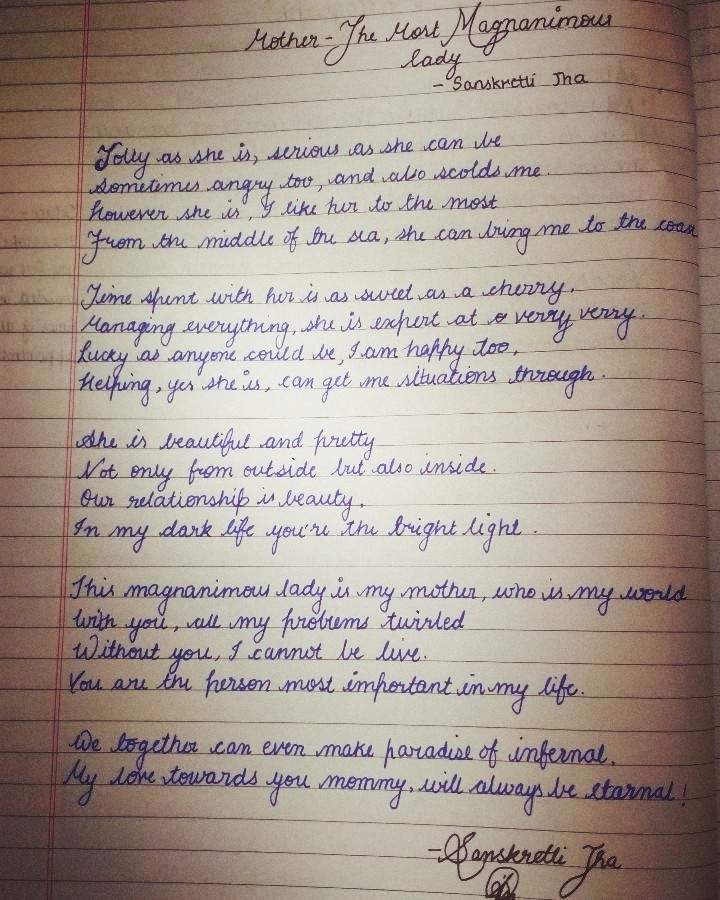 Mother - The Most Magnanimous
lady
- Sanskretti Jha
Jolly as she is, serious as she can be
Sometimes angry too, and also scolds me.
However she is, I like her to the most
From the middle of the sea, she can bring me to the coast
Time spent with her is as sweet as a cherry.
Managing everything, she is expert at a verry verry.
Lucky as anyone could be, I am happy too,
Helping, yes she is, can get me situations through.
She is beautiful and pretty
Not only from outside but also inside.
Our relationship is beauty.
In my dark life you're the bright light.
This magnanimous lady is my mother, who is my world
With you, all my problems twirled
Without you, I cannot be live.
You are the person most important in my life.
We together can even make paradise of infernal.
My love towards you mommy, will always be etarnal!
- Sanskretti Jha